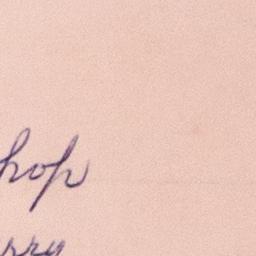 hop
rry